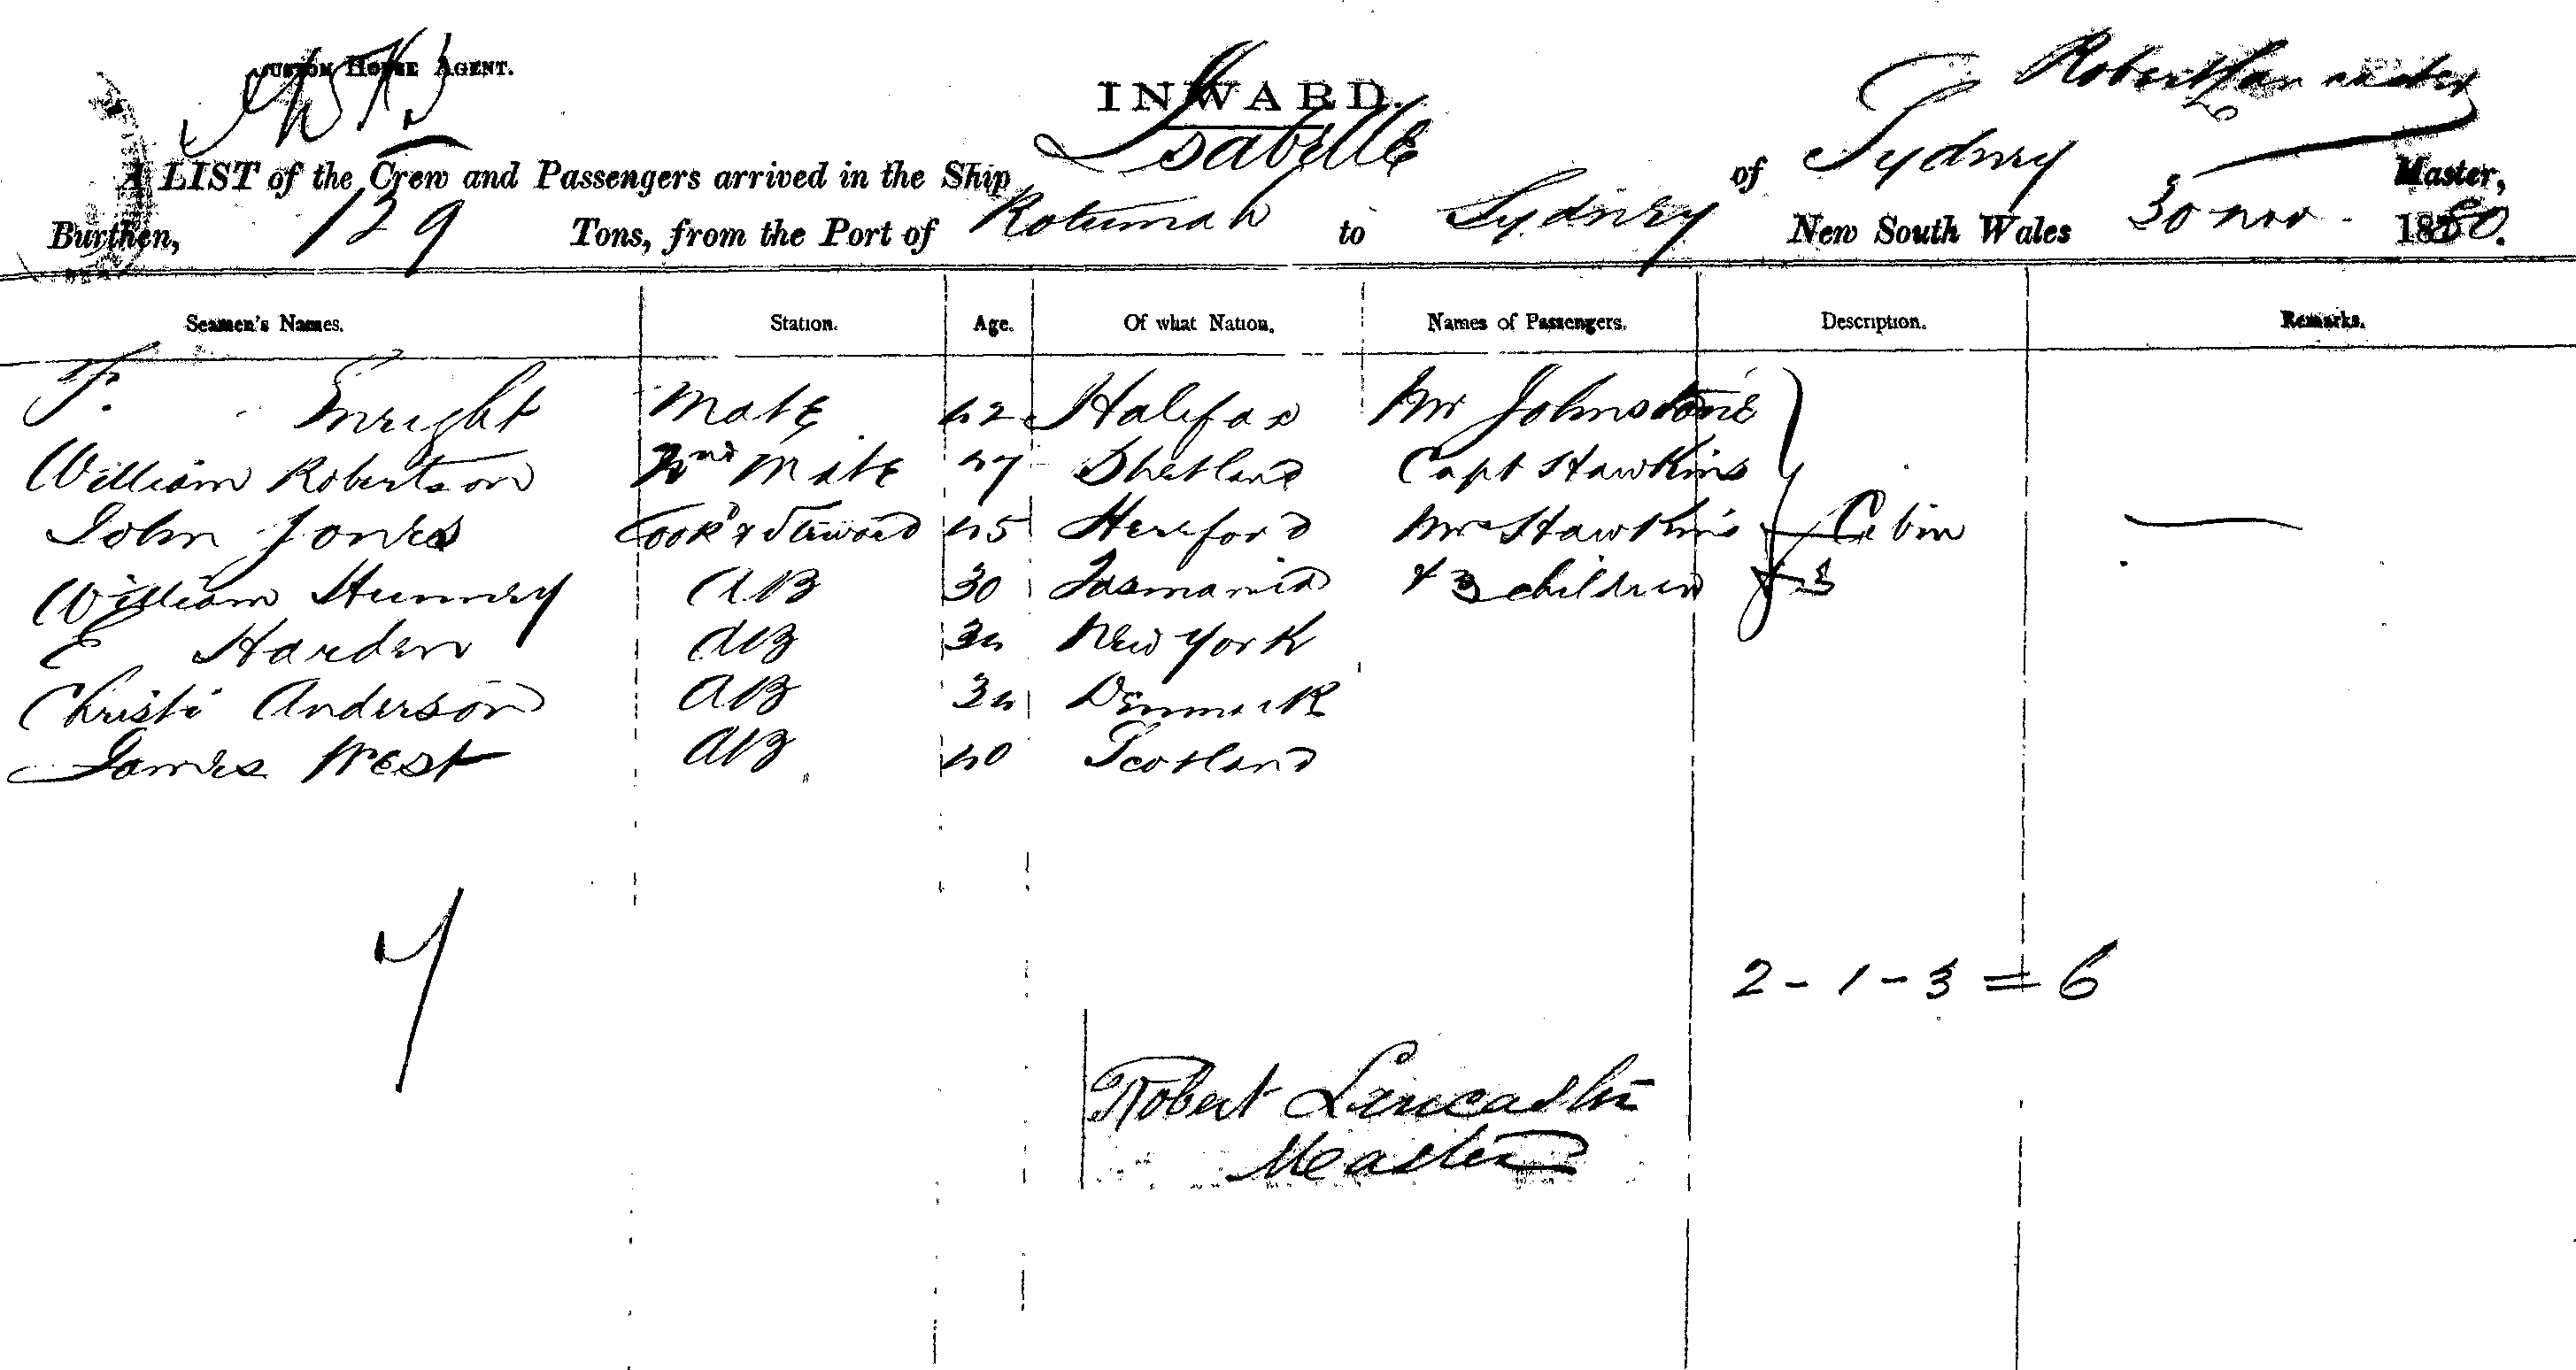 CUSTOM HOUSE AGENT.
INWARD.
Robert Lancaster
A LIST of the Crew and Passengers arrived in the Ship Isabelle of Sydney Master,
Burthen, 129 Tons, from the Port of Rotumah to Sydney New South Wales 30 Nov 1880.
Seamen's Names. Station. Age. Of what Nation. Names of Passengers. Description. Remarks.
F. Enright Mate 42 Halifax Mr Johnstone
William Robertson 2nd Mate 47 Shetland Capt Hawkins
John Jones Cook & Steward 45 Hereford Mrs Hawkins Cabin
William AB 30 Tasmania & 3 children 3
E Harden AB 34 New York
Christi Anderson AB 34 Denmark
James West AB 40 Scotland
7
2 - 1 - 3 = 6
Robert Lancaster
Master